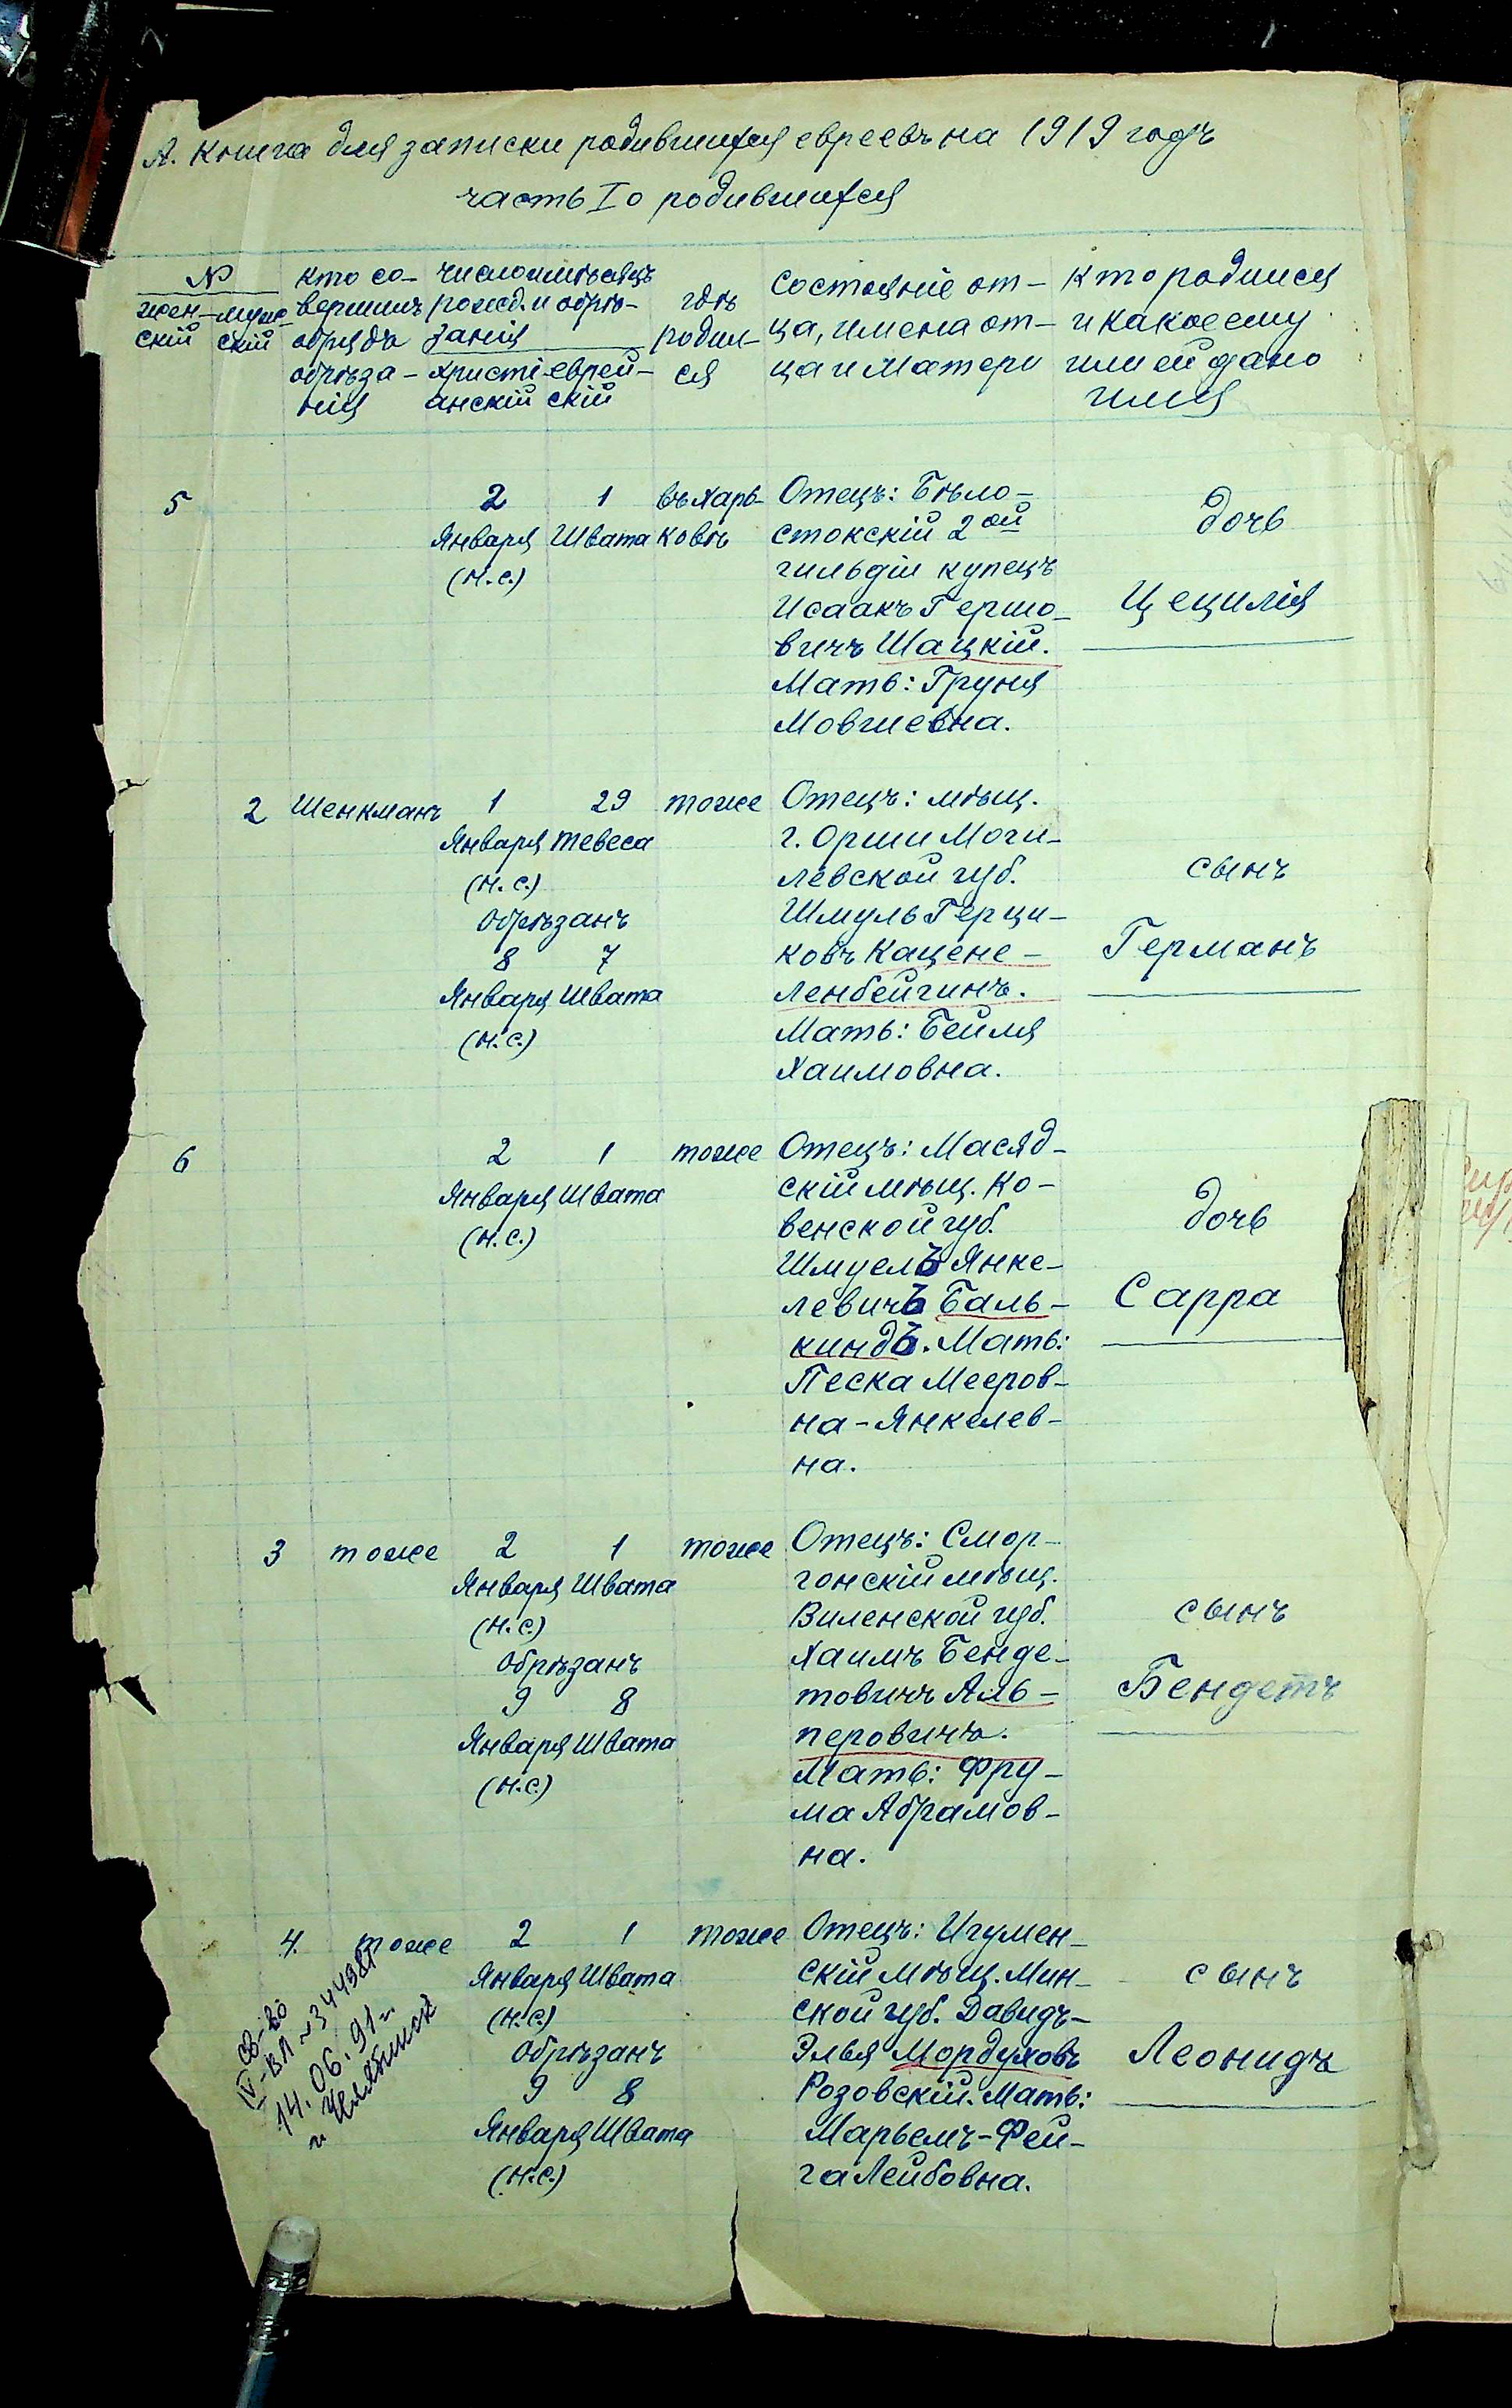 А. Книга для записки родившихся евреевъ на 1919 годъ
часть I о родившихся
№
жен-
скій
муж-
скій
кто со-
вершилъ
обрядъ
обрѣза-
нія
число и мѣсяцъ
рожд. и обрѣ-
занія
христі-
анскій
еврей-
скій
гдѣ
родил-
ся
Состояніе от-
ца, имена от-
ца и матери
Кто родился
и какое ему
или ей дано
имя
5
2
Января
(н.с.)
1
Швата
въ Харь-
ковѣ
Отецъ: Бѣло-
стокскій 2ой
гильдіи купецъ
Исаакъ Гершо-
вичъ Шацкій.
Мать: Груня
Мовшевна.
дочь
Цецилія
2
Шенкманъ
1 29
Января Тевеса
(н.с.)
Обрѣзанъ
8 7
Января Швата
(н.с.)
тоже
Отецъ: мѣщ.
г. Орши Моги-
левской губ.
Шмуль Герци-
ковъ Кацене-
ленбейгинъ.
Мать: Бейля
Хаимовна.
сынъ
Германъ
6
2 1
Января Швата
(н.с.)
тоже
Отецъ: Масяд-
скій мѣщ. Ко-
венской губ.
Шмуелъ Янке-
левичъ Баль-
киндъ. Мать:
Песка Мееров-
на-Янкелев-
на.
дочь
Сарра
3
тоже
2 1
Января Швата
(н.с.)
Обрѣзанъ
9 8
Января Швата
(н.с.)
тоже
Отецъ: Смор-
гонскій мѣщ.
Виленской губ.
Хаимъ Бенде-
товичъ Аль-
перовичъ.
Мать: Фру-
ма Абрамов-
на.
сынъ
Бендетъ
4.
тоже
2 1
Января Швата
(н.с.)
Обрѣзанъ
9 8
Января Швата
(н.с.)
тоже
Отецъ: Игумен-
скій мѣщ. Мин-
ской губ. Давидъ-
Элья Мордуховъ
Розовскій. Мать:
Марьемъ-Фей-
га Лейбовна.
сынъ
Леонидъ
св-во
IV-ВЛ № 344981
14.06.91г.
г Челябинск